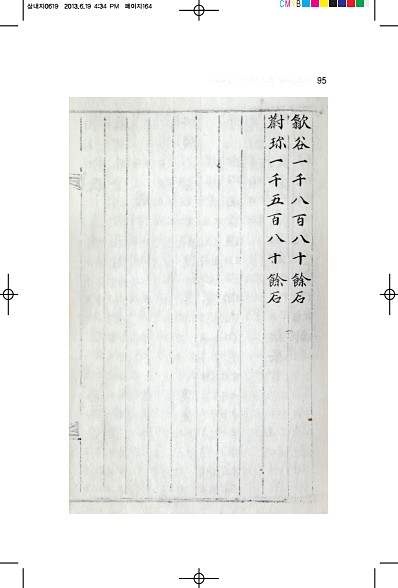 삼내지0619 2013.6.19 4:34 PM 페이지164
CMYB
95
歙谷一千八百八十餘石
蔚珍一千五百八十餘石